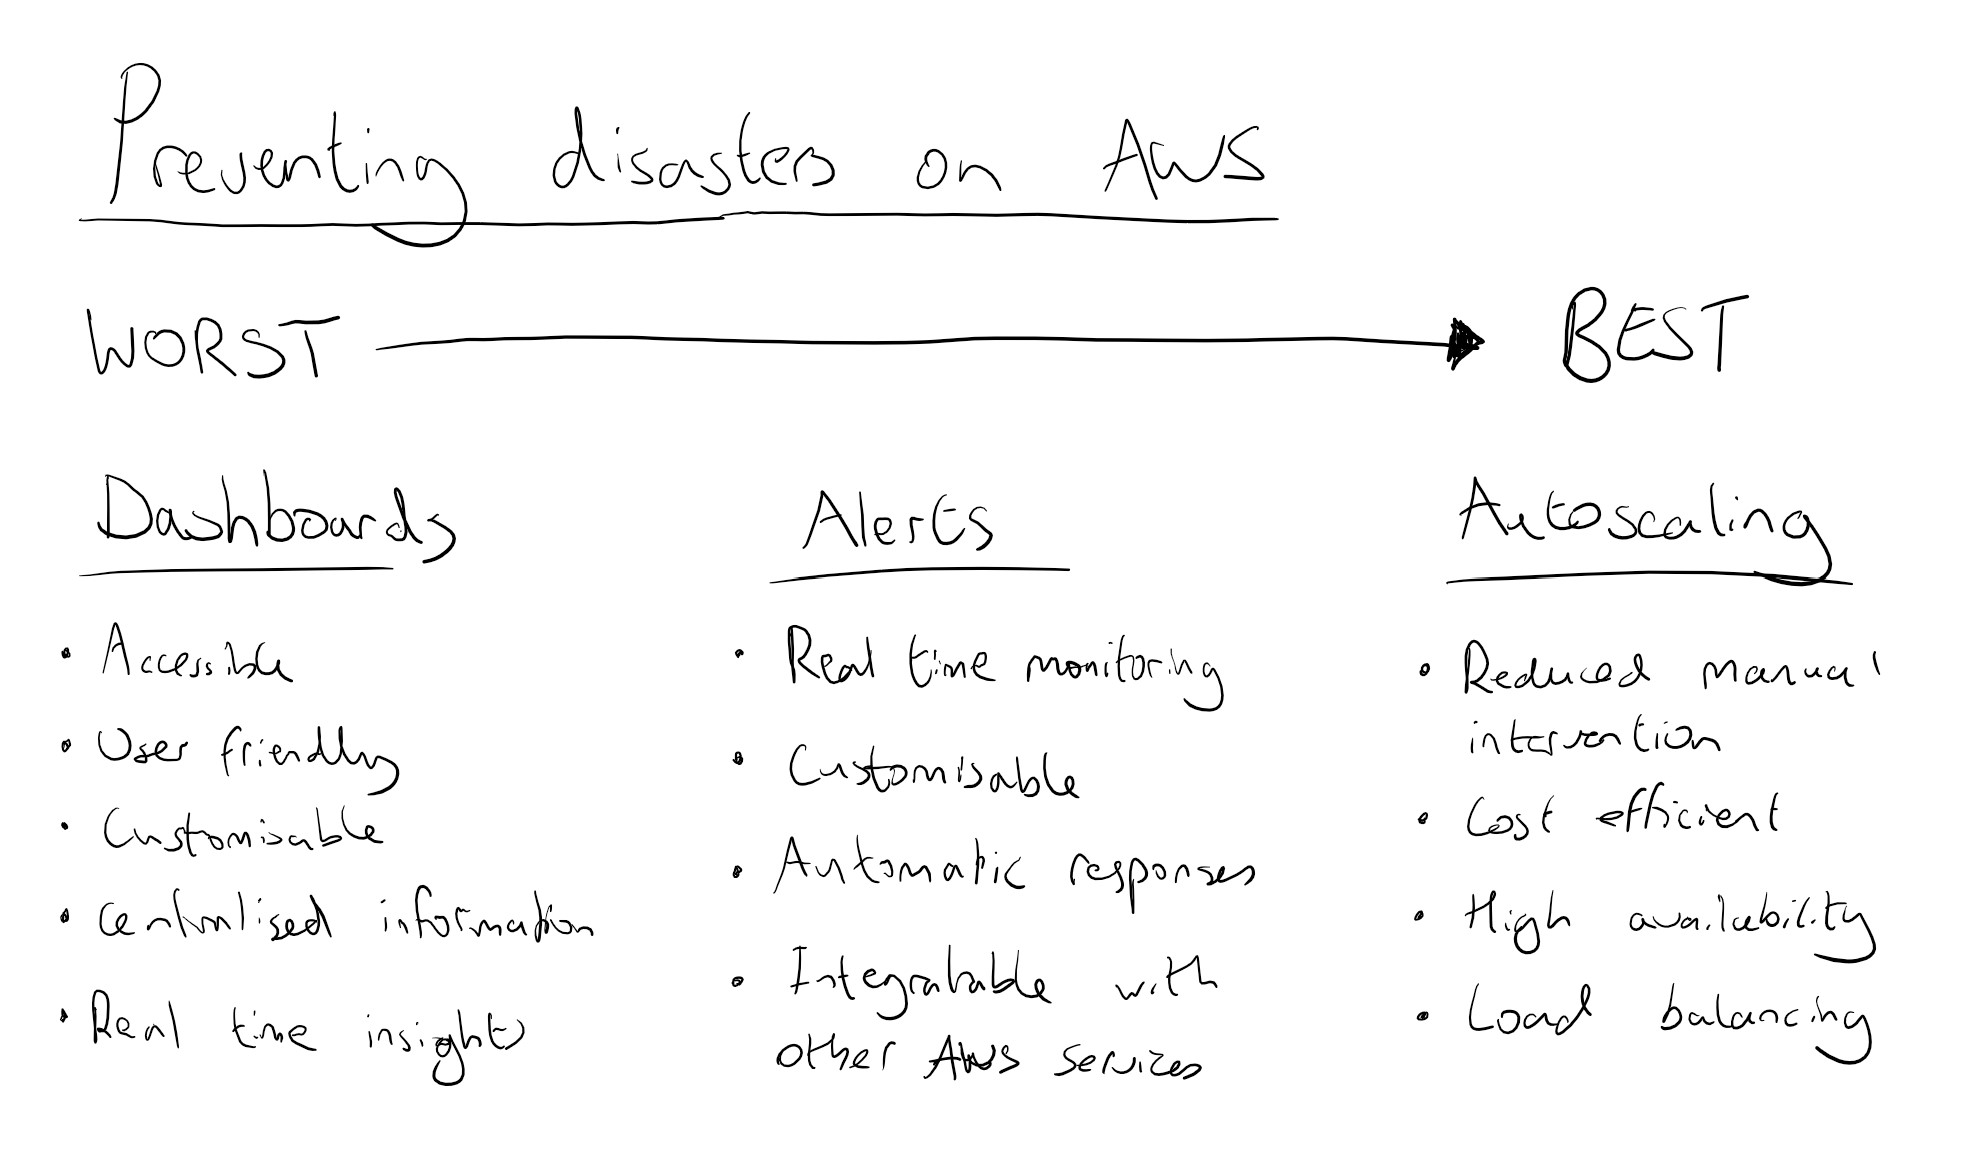 Preventing disasters on AWS
WORST
BEST
Dashboards
• Accessible
• User friendly
• Customisable
• Centralised information
• Real time insights
Alerts
• Real time monitoring
• Customisable
• Automatic responses
• Integratable with
other AWS services
Autoscaling
• Reduced manual
intervention
• Cost efficient
• High availability
• Load balancing